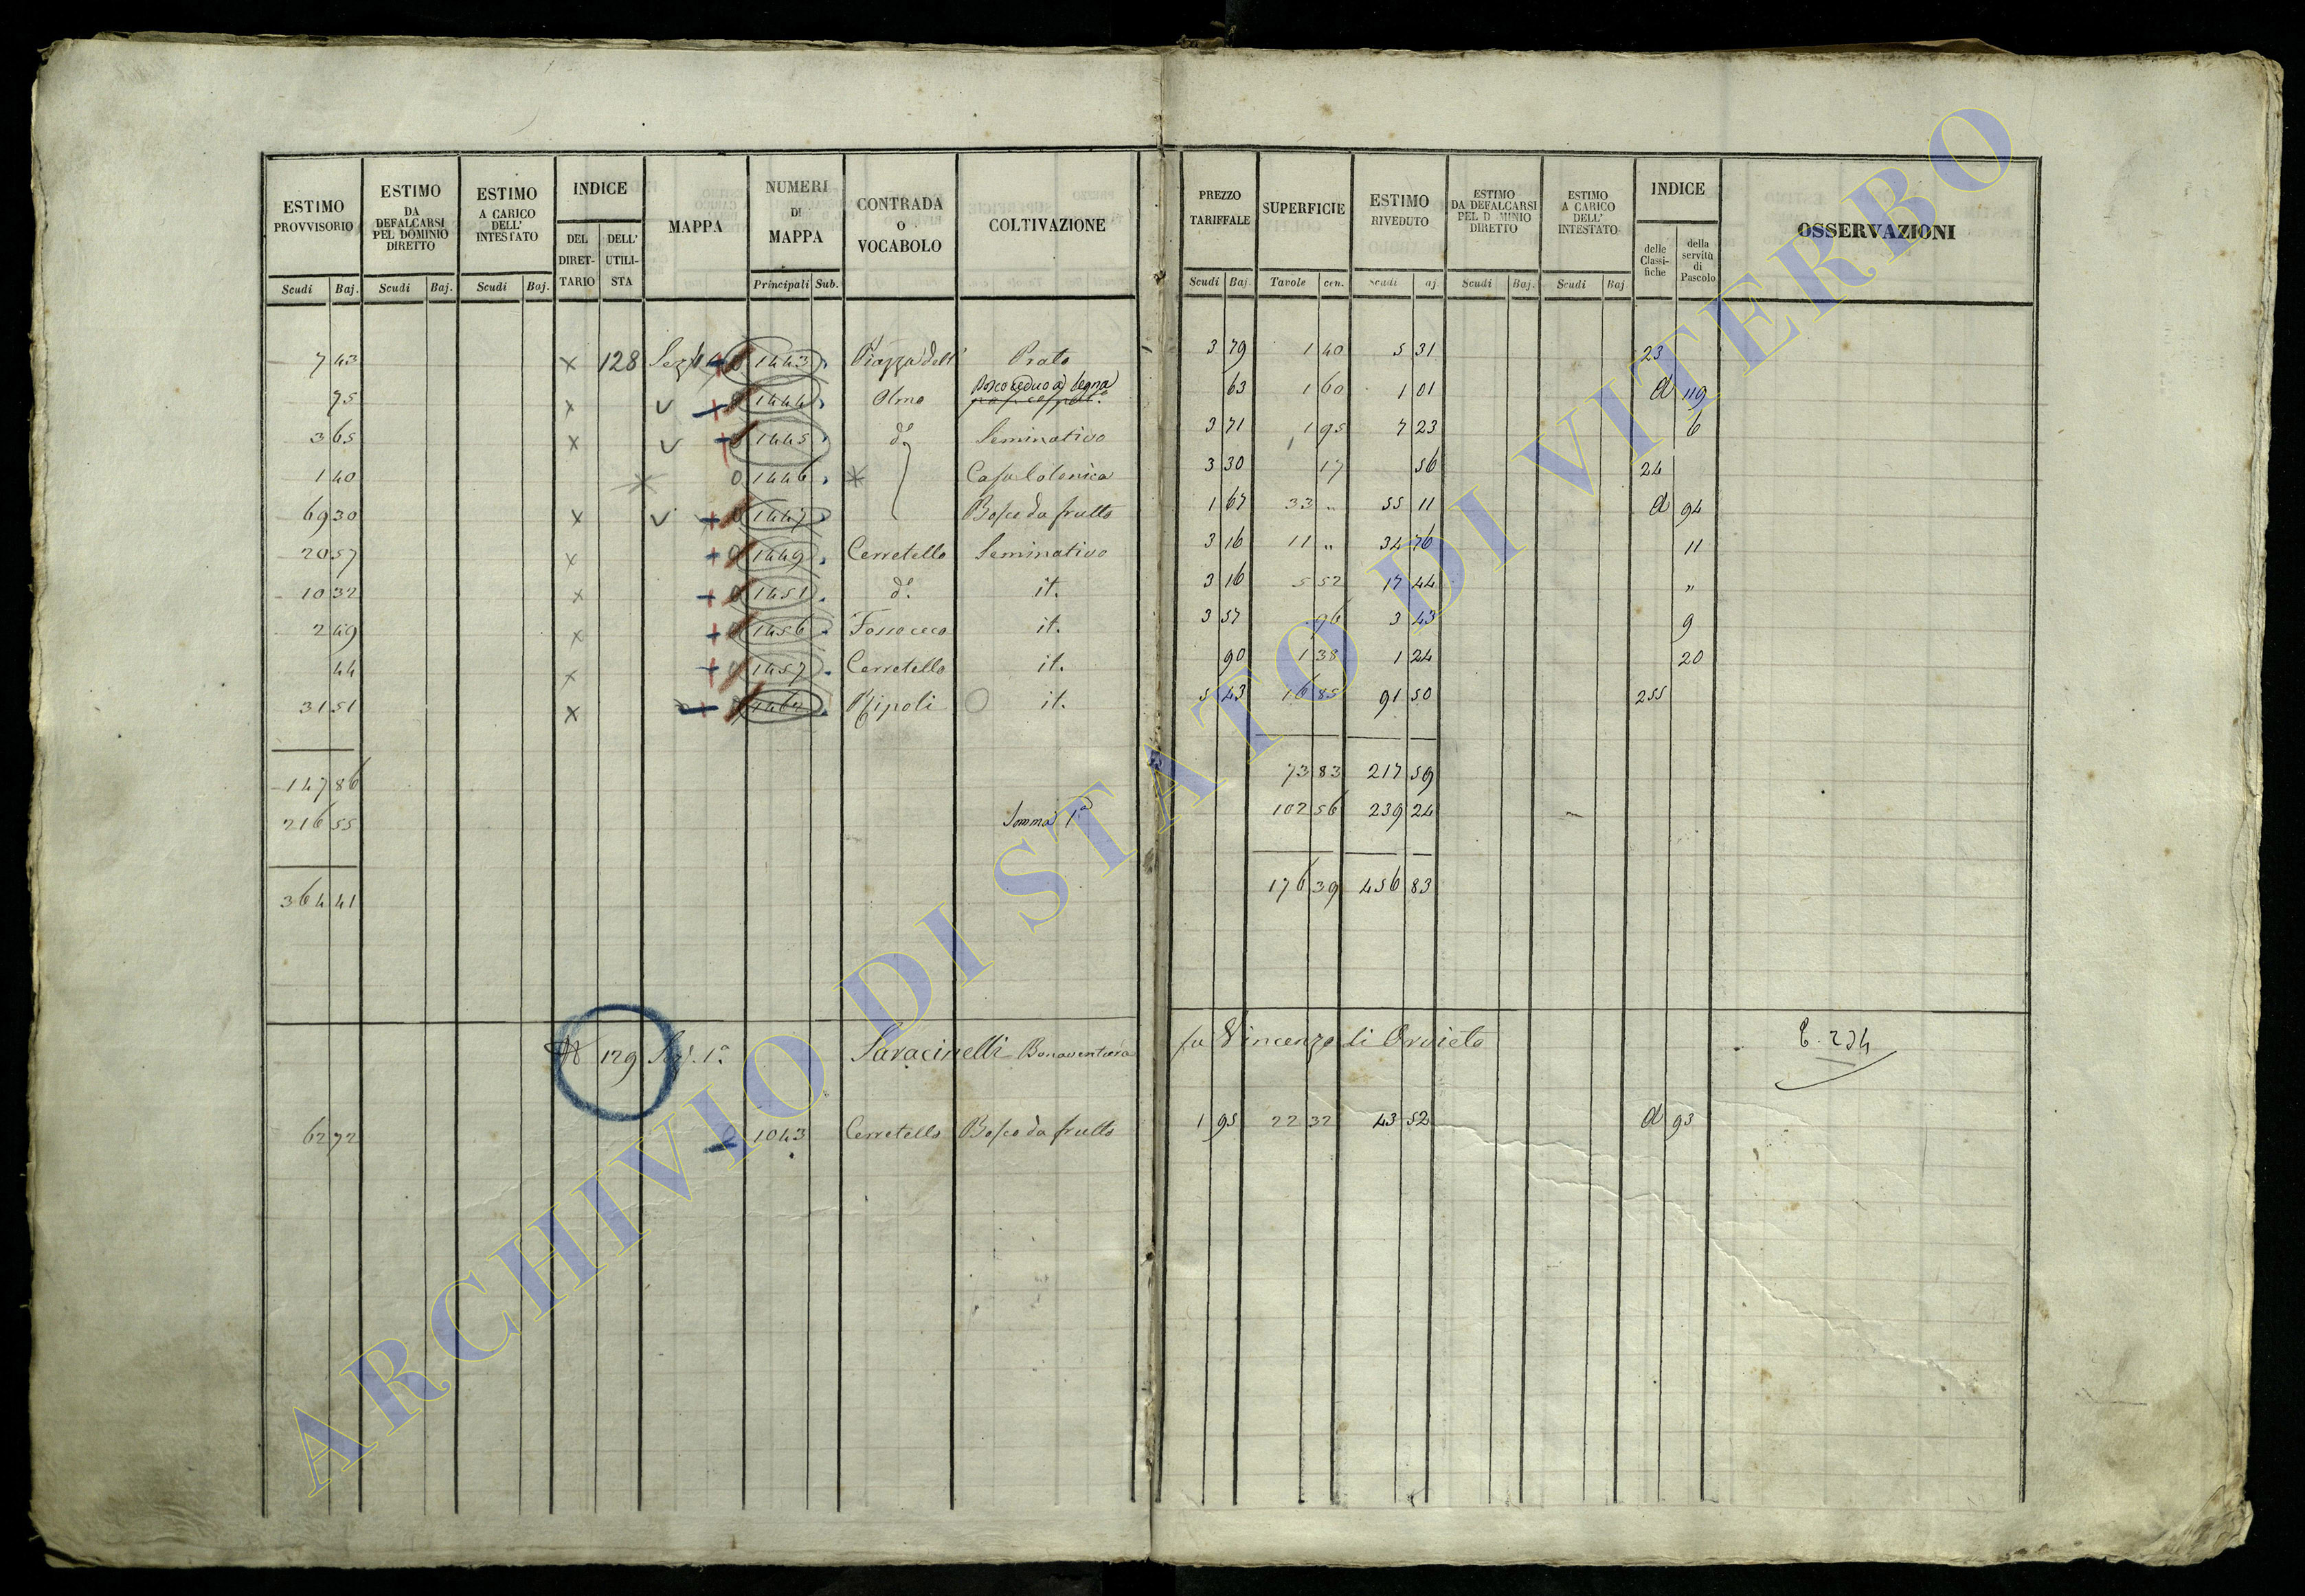 ESTIMO PROVVISORIO ESTIMO DA DEFALCARSI PEL DOMINIO DIRETTO ESTIMO A CARICO DELL' INTESTATO INDICE DEL DIRETTARIO DELL' UTILISTA MAPPA NUMERI DI MAPPA CONTRADA O VOCABOLO COLTIVAZIONE PREZZO TARIFFALE SUPERFICIE ESTIMO RIVEDUTO ESTIMO DA DEFALCARSI PEL D MINIO DIRETTO ESTIMO A CARICO DELL' INTESTATO INDICE delle Classifiche della servitù di Pascolo OSSERVAZIONI
Scudi Baj. Scudi Baj. Scudi Baj. Principali Sub. Scudi Baj. Tavole cen. Scudi aj Scudi Baj. Scudi Baj
7 43 x 128 1443 Piazza dell' Prato 3 79 1 40 5 31 23
75 x 1444 Olmo Bosco ceduo a legna 63 1 60 1 01 d 119
3 65 x 1445 d° Seminativo 3 71 1 95 7 23 6
1 40 0 1446 Casa Colonica 3 30 17 56 24
69 30 x 1447 Bosco da frutto 1 67 33 " 55 11 d 94
20 57 x 1449 Cerretello Seminativo 3 16 11 " 34 76 11
10 32 x 1451 d° it. 3 16 5 52 17 44 "
2 49 x 1456 Fosso ceco it. 3 57 96 3 43 9
44 x 1457 Cerretello it. 90 1 38 1 24 20
31 51 x Ripoli it. 5 43 16 85 91 50 255
147 86 73 83 217 59
216 55 Somma 1a 102 56 239 24
364 41 176 39 456 83
129 Sez. 1a Saracinelli Bonaventura fu Vincenzo di Orvieto
62 72 1043 Cerretello Bosco da frutto 1 95 22 32 43 52 d 93
ARCHIVIO DI STATO DI VITERBO